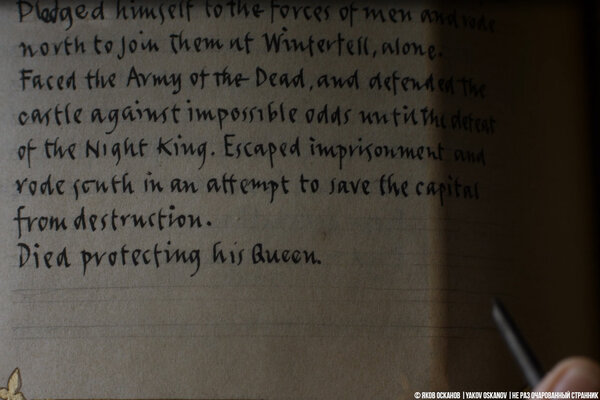 Pledged himself to the forces of men and rode
north to join them at Winterfell, alone.
Faced the Army of the Dead, and defended the
castle against impossible odds until the defeat
of the Night King. Escaped imprisonment and
rode south in an attempt to save the capital
from destruction.
Died protecting his Queen.
© ЯКОВ ОСКАНОВ | YAKOV OSKANOV | НЕ РАЗ ОЧАРОВАННЫЙ СТРАННИК